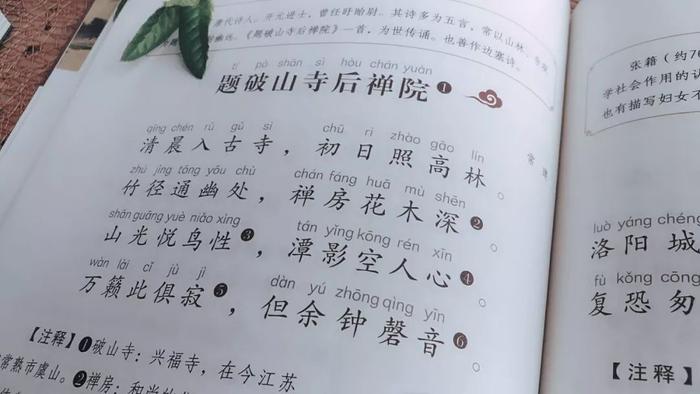 唐代诗人。开元进士,曾任盱眙尉。其诗多为五言,常以山林、寺观
《题破山寺后禅院》一首,为世传诵。也善作边塞诗。
tí pò shān sì hòu chán yuàn
题破山寺后禅院❶
常建
qīng chén rù gǔ sì chū rì zhào gāo lín
清晨入古寺,初日照高林。
zhú jìng tōng yōu chù chán fáng huā mù shēn
竹径通幽处,禅房花木深❷。
shān guāng yuè niǎo xìng tán yǐng kōng rén xīn
山光悦鸟性❸,潭影空人心❹。
wàn lài cǐ jù jì dàn yú zhōng qìng yīn
万籁此俱寂❺,但余钟磬音❻。
【注释】❶破山寺:兴福寺,在今江苏
常熟市虞山。❷禅房:
张籍(约76
学社会作用的认
也有描写妇女不
luò yáng chéng
洛阳城
fù kǒng cōng
复恐匆
【注释】